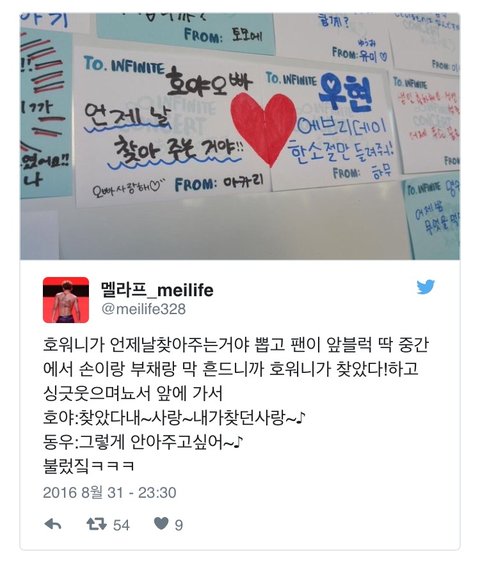 FROM: 토모에
FROM: 유미♡
TO. INFINITE 호야오빠
언제날
찾아 주는 거야!!
오빠사랑해♡
FROM: 아카리
TO. INFINITE
우현
에브리데이
한소절만 들려주시!
FROM: 하무
멜라프_meilife
@meilife328
호워니가 언제날찾아주는거야 뽑고 팬이 앞블럭 딱 중간
에서 손이랑 부채랑 막 흔드니까 호워니가 찾았다!하고
싱긋웃으며뇨서 앞에 가서
호야:찾았다내~사랑~내가찾던사랑~♪
동우:그렇게 안아주고싶어~♪
불렀짘ㅋㅋㅋ
2016 8월 31 - 23:30
54
9